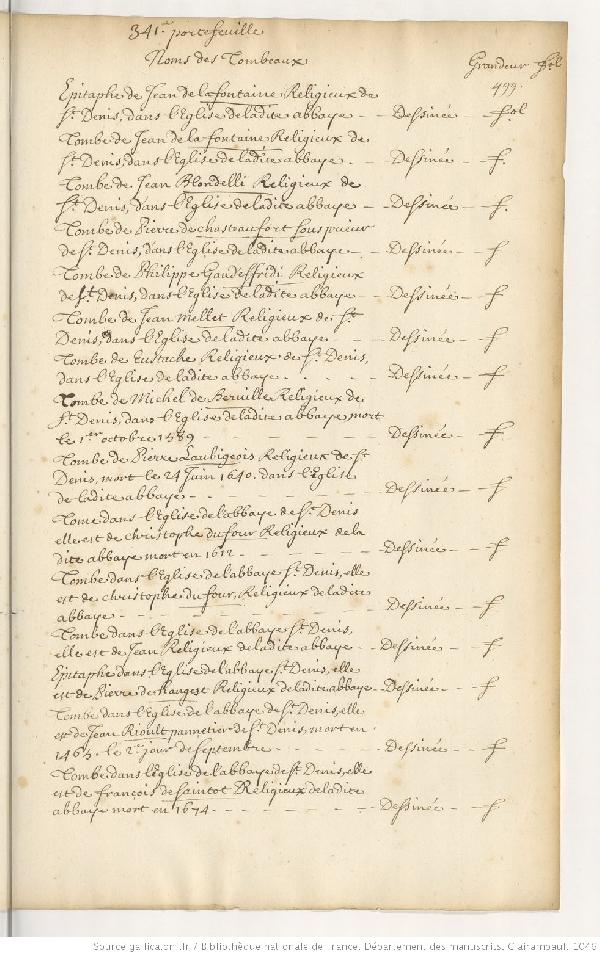 341.e portefeuille
Noms des Tombeaux
Grandeur fol
499.
Epitaphe de Jean de la fontaine Religieux de
St. Denis, dans l'Eglise de ladite abbaye - Dessinée - fol
Tombe de Jean de la fontaine Religieux de
St. Denis, dans l'Eglise de ladite abbaye. - Dessinée - f.
Tombe de Jean Blondelli Religieux de
St. Denis, dans l'Eglise de ladite abbaye - Dessinée - f.
Tombe de Pierre de chasteaufort sousprieur
de St. Denis, dans l'Eglise de ladite abbaye - Dessinée - f
Tombe de Philippe Gaudeffridi Religieux
de St Denis, dans l'Eglise de ladite abbaye - Dessinée - f
Tombe de Jean Mellet Religieux de St
Denis, dans l'Eglise de ladite abbaye - Dessinée - f
Tombe de Eustache Religieux de St. Denis,
dans l'Eglise de ladite abbaye - Dessinée - f
Tombe de Michel de Berville Religieux de
St. Denis, dans l'Eglise de ladite abbaye mort
le 1.er octobre 1589 - Dessinée - f
Tombe de Pierre Laubigeois Religieux de St
Denis, mort le 24 Juin 1640. dans l'Eglise
de ladite abbaye - Dessinée - f
Tome dans l'Eglise de l'abbaye de St. Denis
elle est de christophe du four Religieux de la
dite abbaye mort en 1612 - Dessinée - f
Tombe dans l'Eglise de l'abbaye St. Denis, elle
est de christophe du four, Religieux de ladite
abbaye - Dessinée - f
Tombe dans l'Eglise de l'abbaye St. Denis,
elle est de Jean Religieux de ladite abbaye - Dessinée - f
Epitaphe dans l'Eglise de l'abbaye St. Denis, elle
est de Pierre de Rangest Religieux de ladite abbaye - Dessinée - f
Tombe dans l'Eglise de l'abbaye de St. Denis, elle
est de Jean Rioult pannetier de St. Denis, mort en
1463. le 2.e jour de Septembre - Dessinée - f
Tombe dans l'Eglise de l'abbaye de St Denis, elle
est de françois de Saintot Religieux de ladite
abbaye mort en 1674 - Dessinée - f
Source gallica.bnf.fr / Bibliothèque nationale de France. Département des manuscrits. Clairambault, 1046